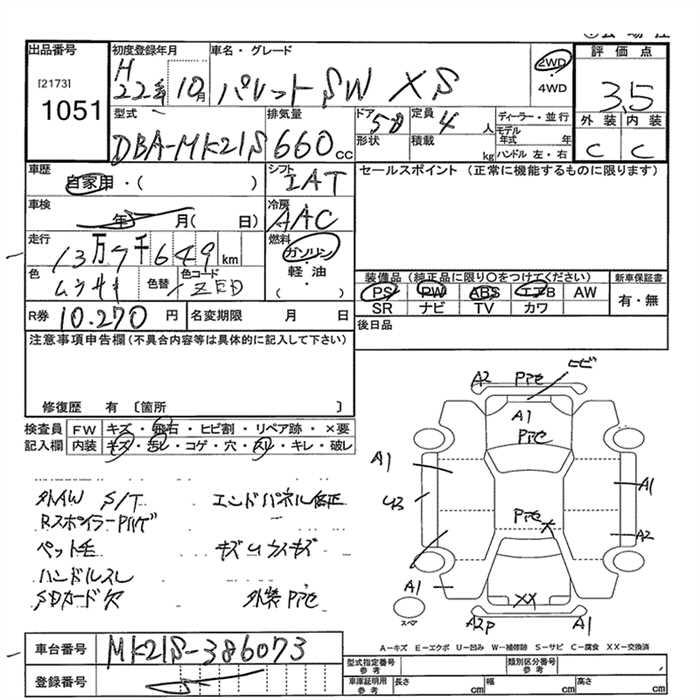 出品番号
[2173]
1051
初度登録年月
H
22年 10月
車名・グレード
パレットSW XS
2WD
4WD
評価点
3.5
外装 内装
C C
型式
DBA-MK21S
排気量
660cc
ドア 5D
形状
定員 4人
積載 kg
ディーラー・並行
モデル年式 年
ハンドル 左・右
車歴
自家用・( )
シフト
IAT
セールスポイント (正常に機能するものに限ります)
車検
年 月( 日)
冷房
AAC
走行
13万7千649km
燃料
ガソリン
軽・油
( )
色
ムラサキ
色替
色コード
ZED
装備品(純正品に限り○をつけてください)
PS PW ABS エアB AW
SR ナビ TV カワ
新車保証書
有・無
R券 10.270 円
名変期限 月 日
後日品
注意事項申告欄(不具合内容等は具体的に記入して下さい)
修復歴 有〔箇所 〕
検査員
記入欄
FW キズ・飛石・ヒビ割・リペア跡・×要
内装 キズ・汚レ・コゲ・穴・スレ・キレ・破レ
外AW S/T
Rスポイラー
ペット毛
ハンドルスレ
SDカード欠
エンドパネル修正
キズUカイキズ
外装
A2
ヒビ
A1
A1
U3
A1
A2
A1
XX
A2P
A1
スペア
A-キズ E-エクボ U-凹み W-補修跡 S-サビ C-腐食 XX-交換済
車台番号 MK21S-386073
登録番号
型式指定番号
参考
類別区分番号
参考
車庫証明用
参考
長さ cm
幅 cm
高さ cm